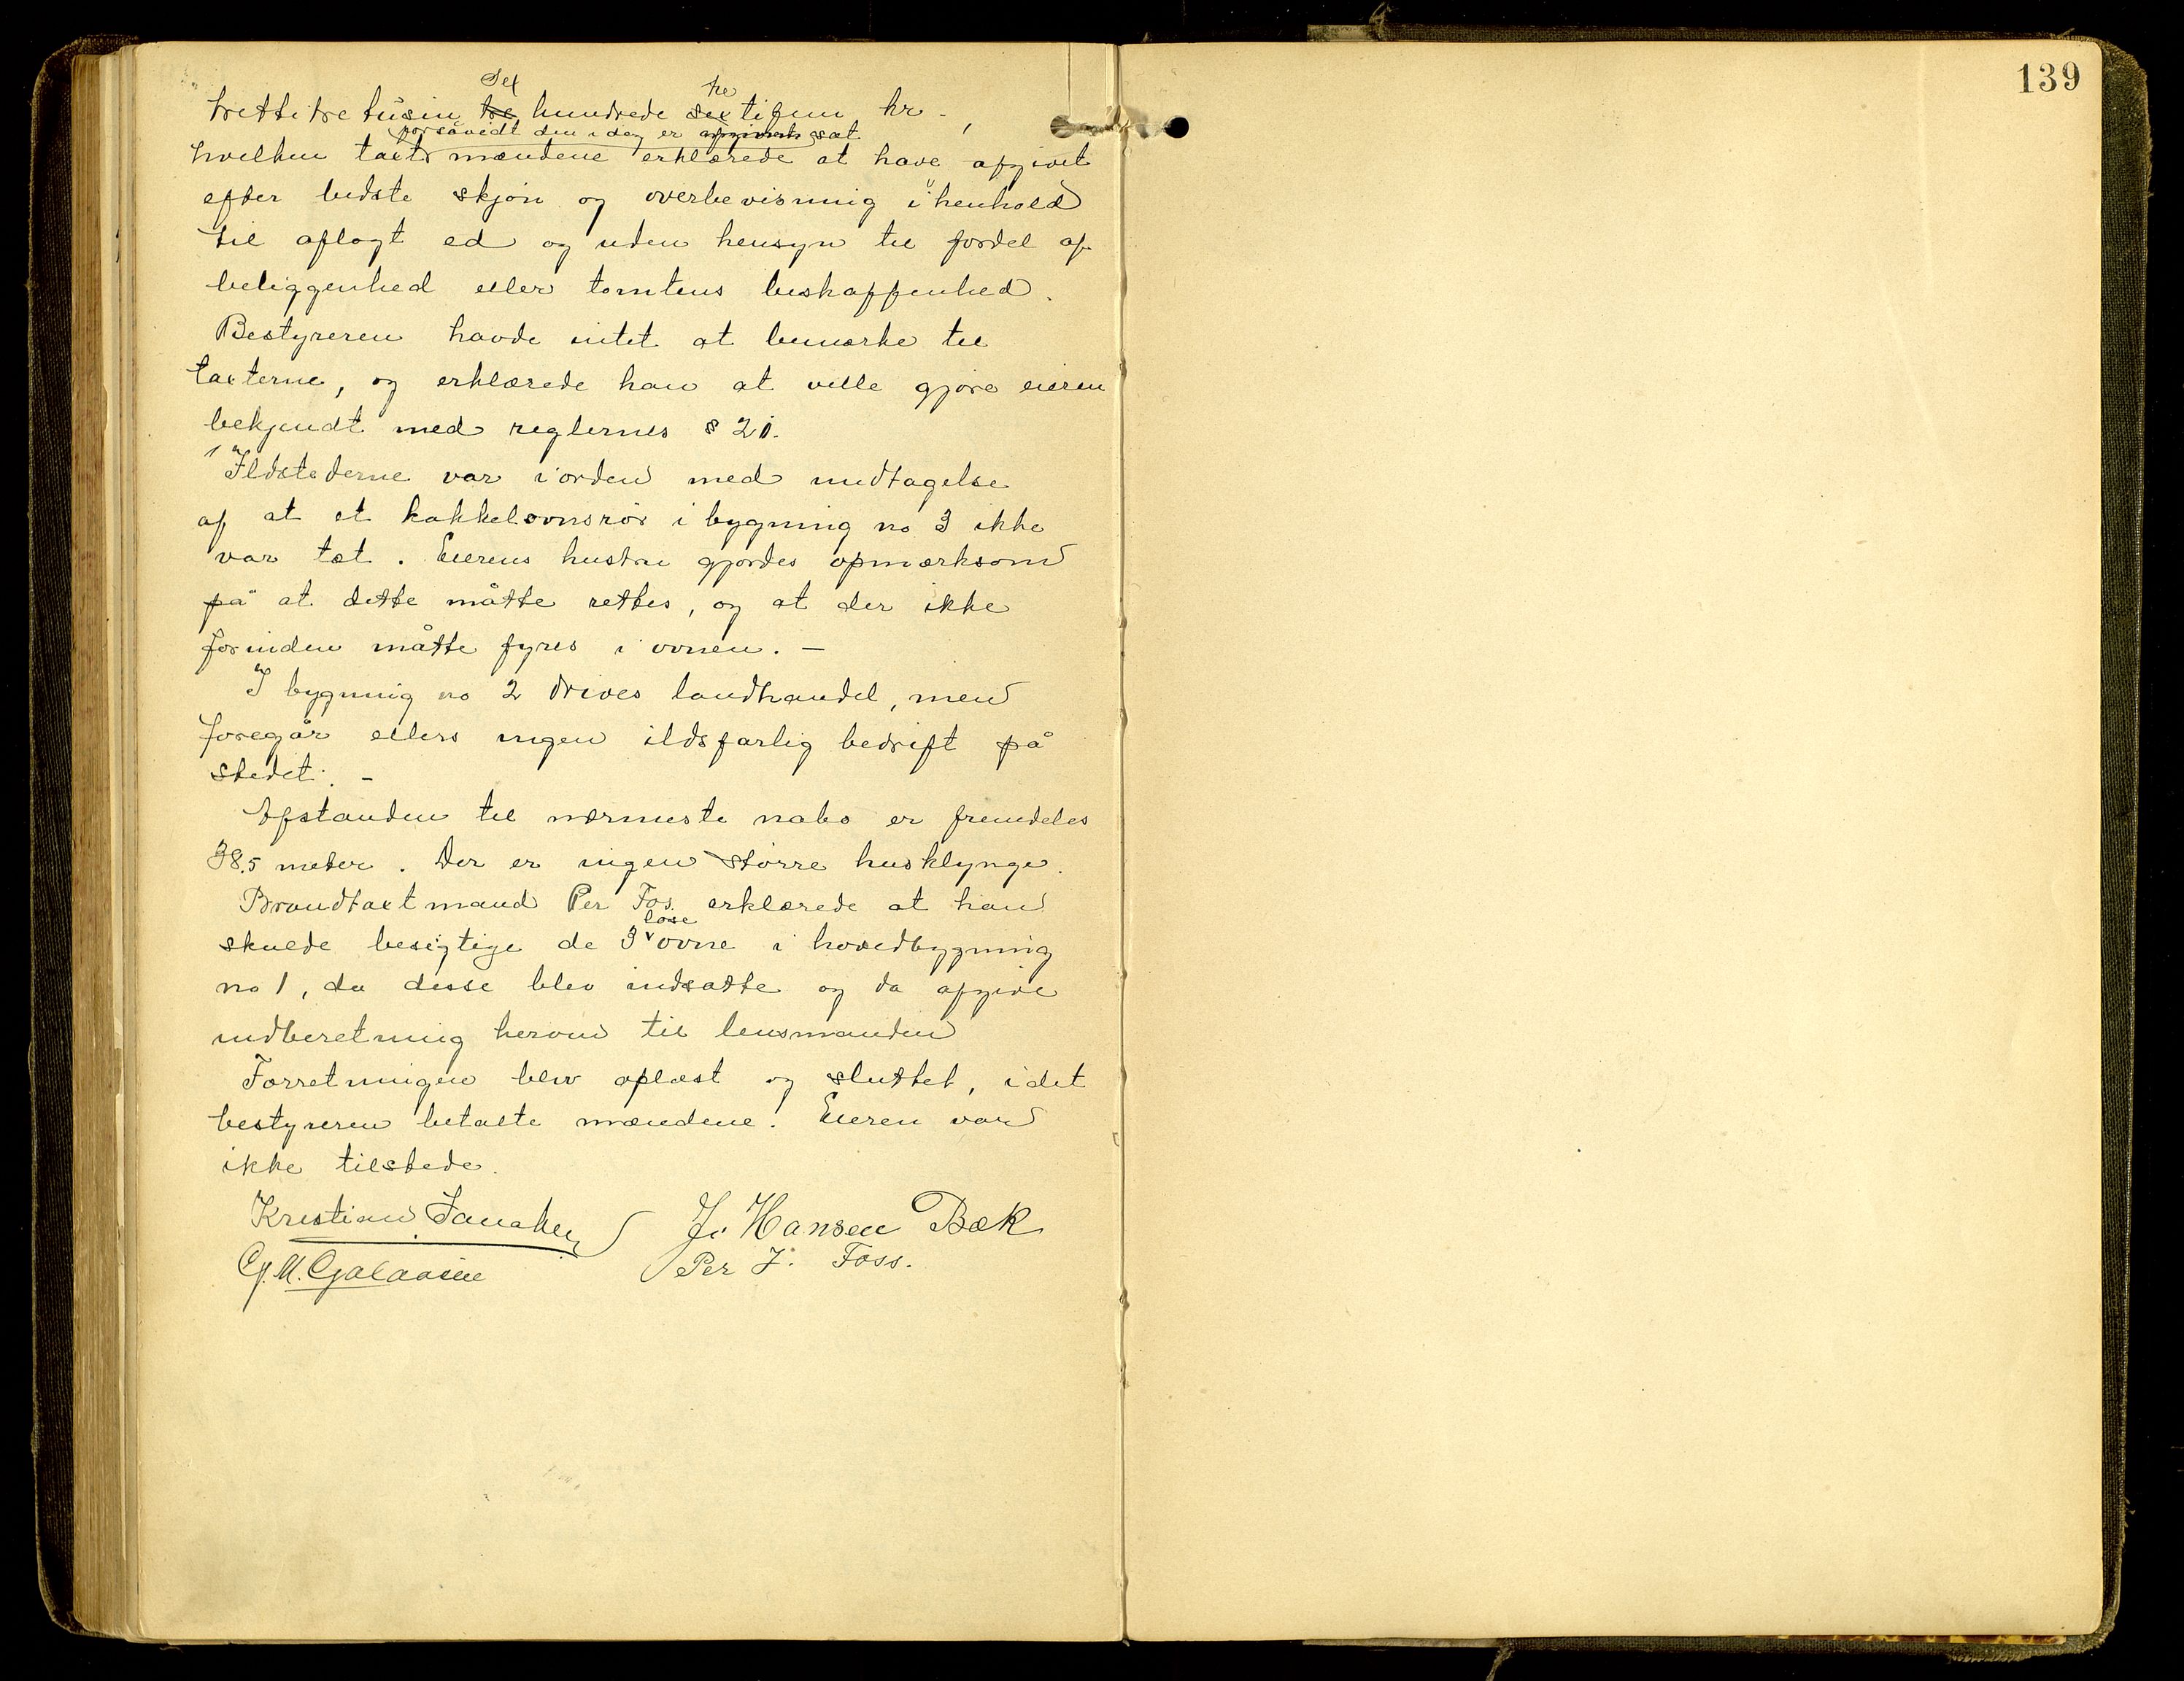 139
Sex tre
trettitre tusin tre hundrede sex tifem kr. ,
forsåvidt den i dag er afgivet sat
hvilken taxt mændene erklærede at have afgivet
efter bedste skjøn og overbevisning i henhold
til aflagt ed og uden hensyn til fordel af
beliggenhed eller tomtens beskaffenhed.
Bestyreren havde intet at bemærke til
taxterne, og erklærede han at ville gjøre eieren
bekjendt med reglernes § 21.
Ildstederne var i orden med undtagelse
af at et kakkelovnsrør i bygning no 3 ikke
var tæt. Eierens hustru gjordes opmærksom
på at dette måtte rettes, og at der ikke
forinden måtte fyres i ovnen. —
I bygning no 2 drives landhandel, men
foregår ellers ingen ildsfarlig bedrift på
stedet. —
Afstanden til nærmeste nabo er fremdeles
38.5 meter. Der er ingen større husklynge.
Brandtaxtmand Per Fos. erklærede at han
løse
skulde besigtige de 3 ovne i hovedbygning
no 1, da disse blev indsatte og da afgive
indberetning herom til lensmanden
Forretningen blev oplæst og sluttet, idet
bestyreren betalte mændene. Eieren var
ikke tilstede.
Kristian Jo. Hansen Bæk
Per J. Foss.